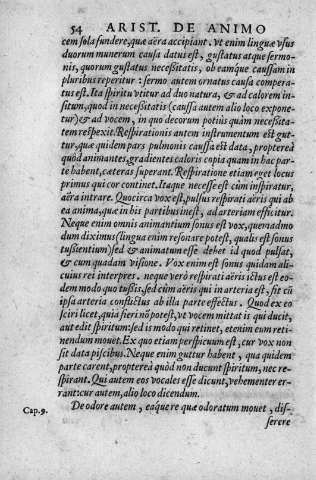 54 ARIST. DE ANIMO
cem sola fundere, quæ aëra accipiant. vt enim linguæ vsus
duorum munerum causa datus est, gustatus atque sermo-
nis, quorum gustatus necessitatis, ob eamque caussam in
pluribus reperitur: sermo autem ornatus causa compera-
tus est. Ita spiritu vtitur ad duo natura, & ad calorem in-
situm, quod in necessitatis (caussa autem alio loco expone-
tur) & ad vocem, in quo decorum potius quàm necessita-
tem respexit. Respirationis autem instrumentum est gut-
tur, quæ quidem pars pulmonis caussa est data, propterea
quòd animantes, gradientes caloris copia quam in hac par-
te habent, cæteras superant. Respiratione etiam eget locus
primus qui cor continet. Itaque necesse est cùm inspiratur,
aëra intrare. Quocirca vox est, pulsus respirati aëris qui ab
ea anima, quæ in his partibus inest, ad arteriam efficitur.
Neque enim omnis animantium sonus est vox, quemadmo
dum diximus (lingua enim resonare potest, qualis est sonus
tussientium) sed & animatum esse debet id quod pulsat,
& cum quadam visione. Vox enim est sonus quidam ali-
cuius rei interpres. neque verò respirati aëris ictus est eo-
dem modo quo tussis. sed cùm aëris qui in arteria est, sit cū
ipsa arteria conflictus ab illa parte effectus. Quod ex eo
sciri licet, quia fieri nō potest, vt vocem mittat is qui ducit,
aut edit spiritum: sed is modo qui retinet, etenim eum reti-
nendum mouet. Ex quo etiam perspicuum est, cur vox non
sit data piscibus. Neque enim guttur habent, qua quidem
parte carent, propterea quòd non ducunt spiritum, nec re-
spirant. Qui autem eos vocales esse dicunt, vehementer er-
rant: cur autem, alio loco dicendum.
Cap. 9. De odore autem, eáq́; re quæ odoratum mouet, dis-
serere